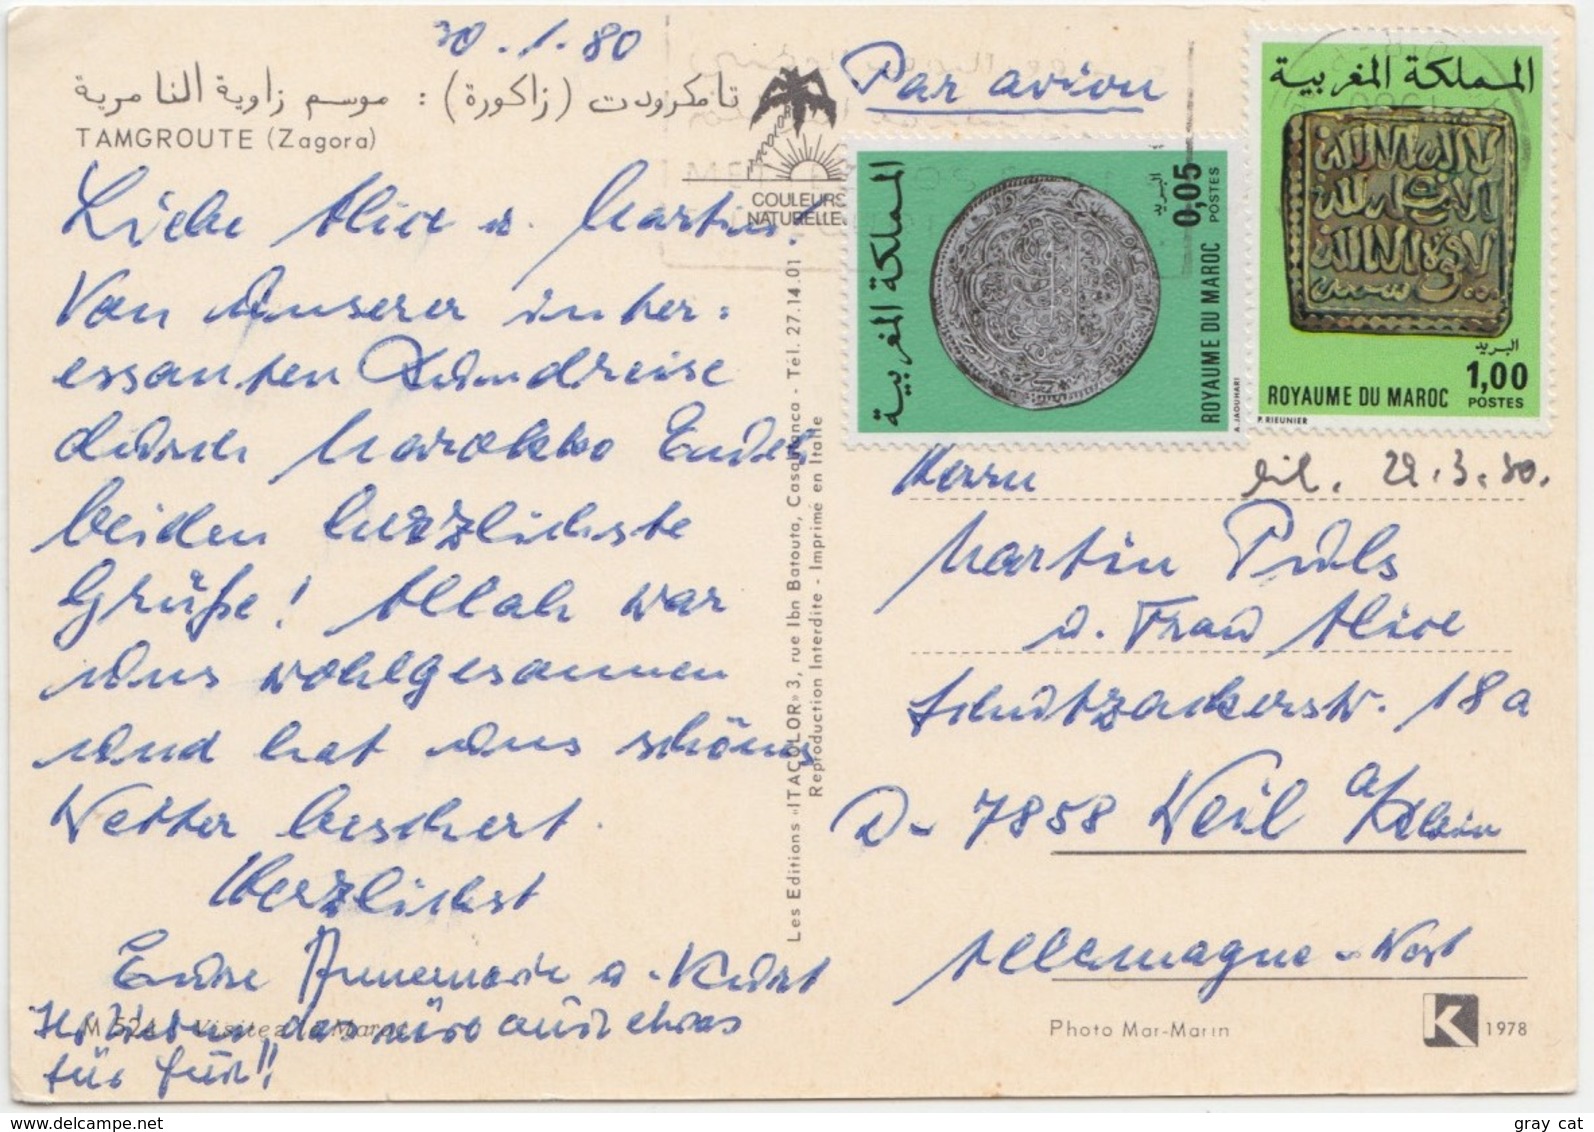 30.1.80
تامكرودت (زاكورة) : موسم زاوية الناصرية
TAMGROUTE (Zagora)
COULEURS
NATURELLES
Par avion
Liebe Alice u. Martin.
Von unserer inter=
essanten Rundreise
durch Marokko Euch
beiden herzlichste
Grüße! Allah war
uns wohlgesonnen
und hat uns schönes
Wetter beschert.
Herzlichst
Eure Annemarie u. Kurt
das wäre auch etwas
für Euch!!
M 524 Visitez le Maroc
Les Editions «ITACOLOR» 3, rue Ibn Batouta, Casablanca - Tél. 27.14.01
Reproduction Interdite - Imprimé en Italie
المملكة المغربية
البريد
0,05
POSTES
ROYAUME DU MAROC
A.JAOUHARI
المملكة المغربية
البريد
1,00
ROYAUME DU MAROC POSTES
P. RIEUNIER
Herrn
eil. 29.3.80.
Martin Puls
u. Frau Alice
Schützackerstr. 18a
D- 7858 Weil a/Rhein
Allemagne - West
Photo Mar-Marin
K 1978
gray cat
www.delcampe.net